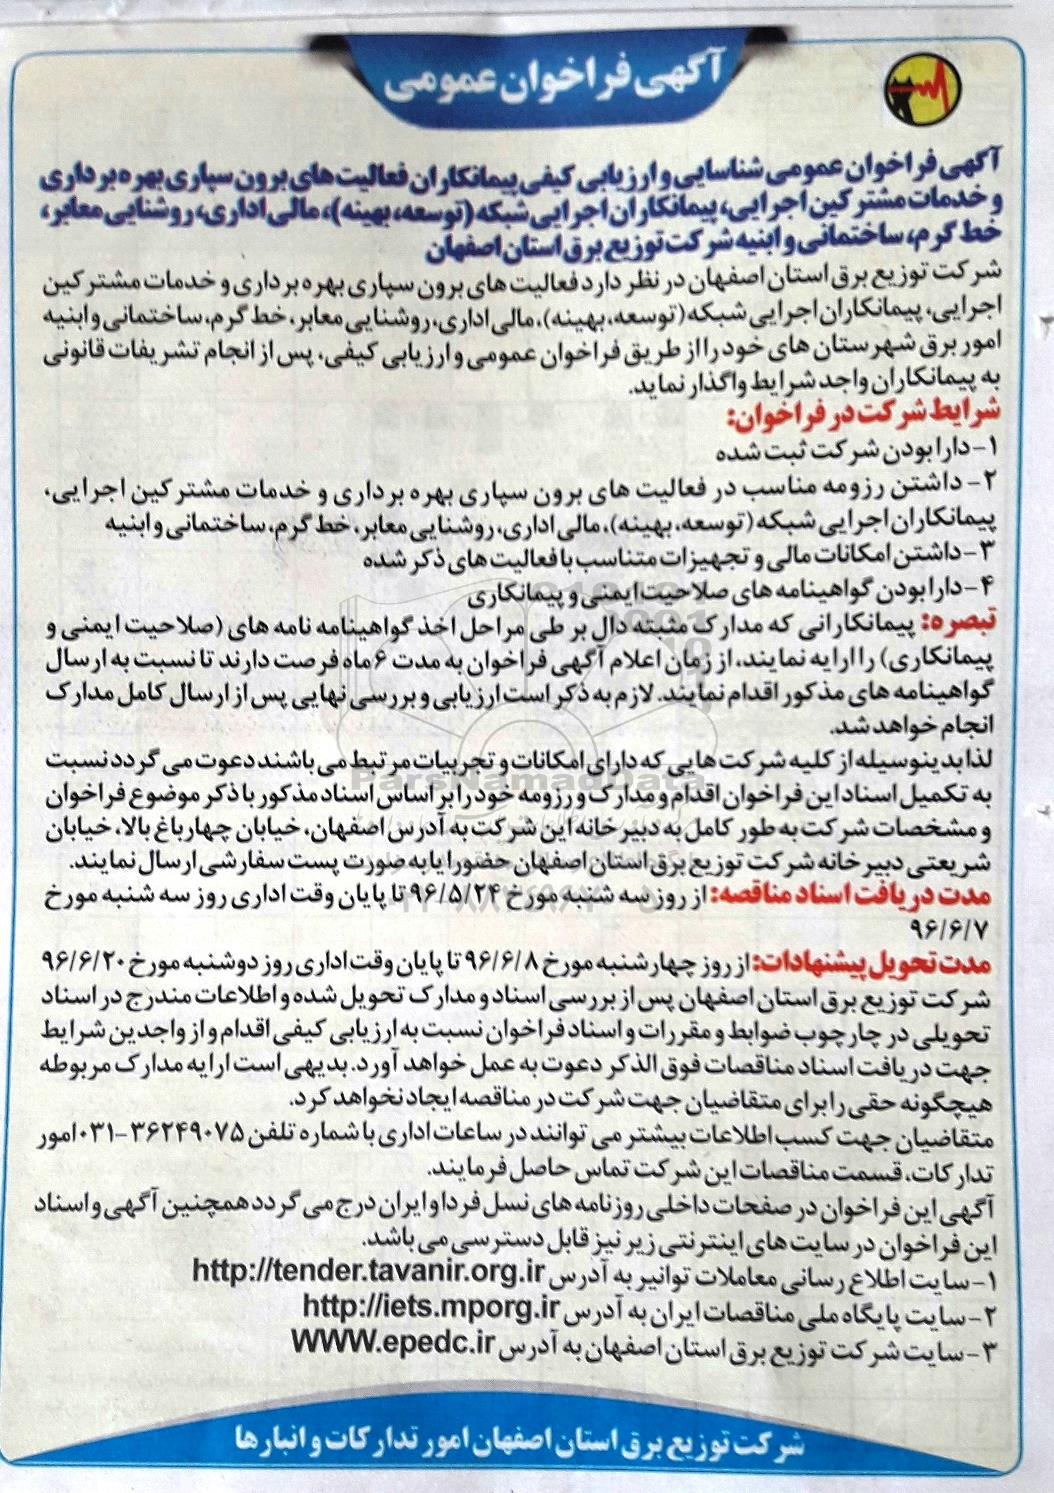 آگهی فراخوان عمومی
آگهی فراخوان عمومی شناسایی و ارزیابی کیفی پیمانکاران فعالیت های برون سپاری بهره برداری
و خدمات مشترکین اجرایی، پیمانکاران اجرایی شبکه (توسعه، بهینه)، مالی اداری، روشنایی معابر،
خط گرم، ساختمانی و ابنیه شرکت توزیع برق استان اصفهان
شرکت توزیع برق استان اصفهان در نظر دارد فعالیت های برون سپاری بهره برداری و خدمات مشترکین
اجرایی، پیمانکاران اجرایی شبکه (توسعه، بهینه)، مالی اداری، روشنایی معابر، خط گرم، ساختمانی و ابنیه
امور برق شهرستان های خود را از طریق فراخوان عمومی و ارزیابی کیفی، پس از انجام تشریفات قانونی
به پیمانکاران واجد شرایط واگذار نماید.
شرایط شرکت در فراخوان:
۱- دارا بودن شرکت ثبت شده
۲- داشتن رزومه مناسب در فعالیت های برون سپاری بهره برداری و خدمات مشترکین اجرایی،
پیمانکاران اجرایی شبکه (توسعه، بهینه)، مالی اداری، روشنایی معابر، خط گرم، ساختمانی و ابنیه
۳- داشتن امکانات مالی و تجهیزات متناسب با فعالیت های ذکر شده
۴- دارا بودن گواهینامه های صلاحیت ایمنی و پیمانکاری
تبصره: پیمانکارانی که مدارک مثبته دال بر طی مراحل اخذ گواهینامه نامه های (صلاحیت ایمنی و
پیمانکاری) را ارایه نمایند، از زمان اعلام آگهی فراخوان به مدت ۶ ماه فرصت دارند تا نسبت به ارسال
گواهینامه های مذکور اقدام نمایند. لازم به ذکر است ارزیابی و بررسی نهایی پس از ارسال کامل مدارک
انجام خواهد شد.
لذا بدینوسیله از کلیه شرکت هایی که دارای امکانات و تجربیات مرتبط می باشند دعوت می گردد نسبت
به تکمیل اسناد این فراخوان اقدام و مدارک و رزومه خود را بر اساس اسناد مذکور با ذکر موضوع فراخوان
و مشخصات شرکت به طور کامل به دبیرخانه این شرکت به آدرس اصفهان، خیابان چهارباغ بالا، خیابان
شریعتی دبیرخانه شرکت توزیع برق استان اصفهان حضورا یا به صورت پست سفارشی ارسال نمایند.
مدت دریافت اسناد مناقصه: از روز سه شنبه مورخ ۹۶/۵/۲۴ تا پایان وقت اداری روز سه شنبه مورخ
۹۶/۶/۷
مدت تحویل پیشنهادات: از روز چهارشنبه مورخ ۹۶/۶/۸ تا پایان وقت اداری روز دوشنبه مورخ ۹۶/۶/۲۰
شرکت توزیع برق استان اصفهان پس از بررسی اسناد و مدارک تحویل شده و اطلاعات مندرج در اسناد
تحویلی در چارچوب ضوابط و مقررات و اسناد فراخوان نسبت به ارزیابی کیفی اقدام و از واجدین شرایط
جهت دریافت اسناد مناقصات فوق الذکر دعوت به عمل خواهد آورد. بدیهی است ارایه مدارک مربوطه
هیچگونه حقی را برای متقاضیان جهت شرکت در مناقصه ایجاد نخواهد کرد.
متقاضیان جهت کسب اطلاعات بیشتر می توانند در ساعات اداری با شماره تلفن ۳۶۲۴۹۰۷۵-۰۳۱ امور
تدارکات، قسمت مناقصات این شرکت تماس حاصل فرمایند.
آگهی این فراخوان در صفحات داخلی روزنامه های نسل فردا و ایران درج می گردد همچنین آگهی و اسناد
این فراخوان در سایت های اینترنتی زیر نیز قابل دسترسی می باشد.
۱- سایت اطلاع رسانی معاملات توانیر به آدرس http://tender.tavanir.org.ir
۲- سایت پایگاه ملی مناقصات ایران به آدرس http://iets.mporg.ir
۳- سایت شرکت توزیع برق استان اصفهان به آدرس WWW.epedc.ir
شرکت توزیع برق استان اصفهان امور تدارکات و انبارها
ParsNamadData